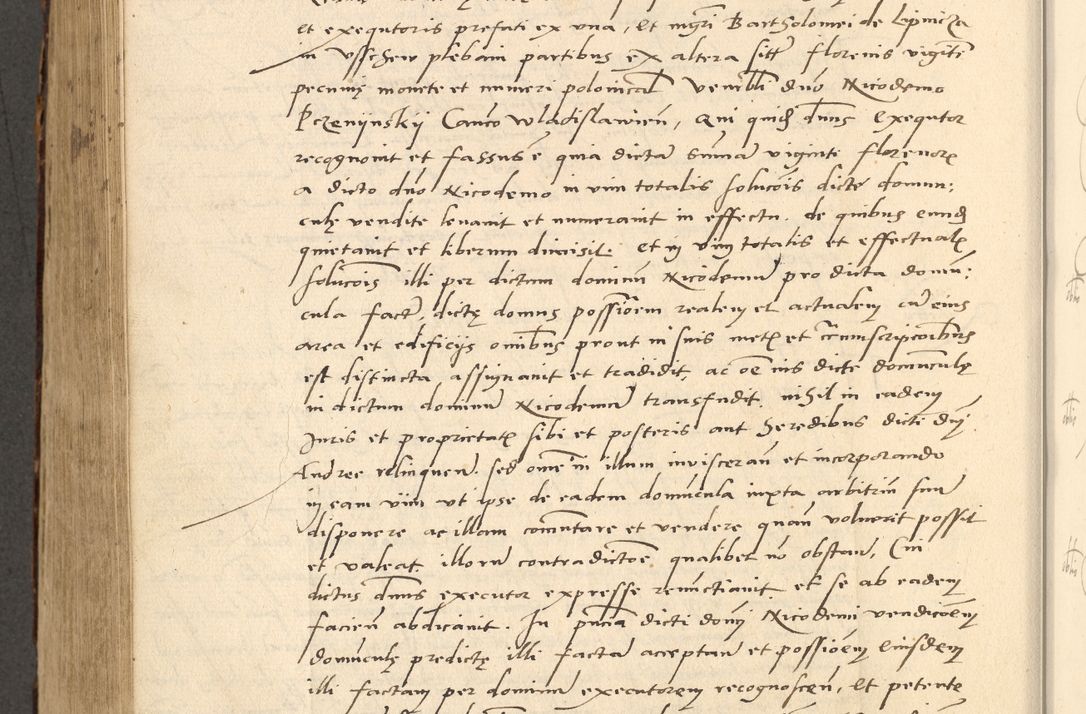 et exequtoris prefati ex una, Et mgri Bartholomei de Lipnicza
in Usschew plebani partibus ex altera sitt florenis viginti
pecunię monete et numeri polonical Venerabli dno Nicodemo
Pczenynskij Canco Wladislawien, Qui quidem dnus Exequtor
recognovit et fassus e quia dictā summā viginti florenor
a dicto dno Nicodemo in vim totalis solucois dicte domun:
culę vendite levavit et numeravit in effectu. de quibus eund
quietavit et liberum dimisit. Et in vim totalis et effectual
solucois illi per dictum dominum Nicodemum pro dicta domu:
cula fact, dictę domus possiorem realem et actualem cū eius
area et edificijs omibus prout in suis met et circumscripcoibus
est distincta assignavit et tradidit, ac oe ius dicte domunculę
in dictum dominum Nicodemum transfudit. nihil in eadem
Juris et proprietat sibi et posteris aut heredibus dicti dni
Andree relinquen. sed ome in illum inviscerando et incorporando
in eam vim ut ipse de eadem domuncula iuxta arbitriū suū
disponere ac illam comutare et vendere quam voluerit possit
et valeat, illorum contradictoe qualibet no obstan, Cui
dictus dnus executor expresse renuctiavit et se ab eadem
facien abdicavit. In pncia dicti domi Nicodemi vendicoem
domunculę predictę illi factā acceptan et possioem eiusdem
illi factam per dominum executorem recognoscen, Et petente